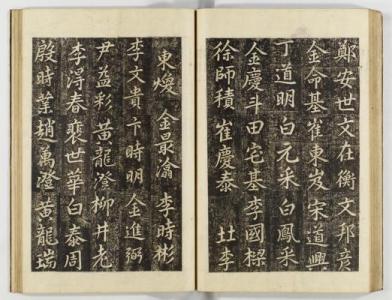 鄭安世文在衡文邦彦
金命基崔東岌宋道興
丁道明白元采白鳳采
金慶斗田宅基李國樑
徐師積崔慶泰　李
東煥　金最瀹　李時彬
李文貴卞時明金進弼
尹益彩黃龍澄柳井老
李得春裵世華白泰周
殷時業趙萬澄黃龍瑞